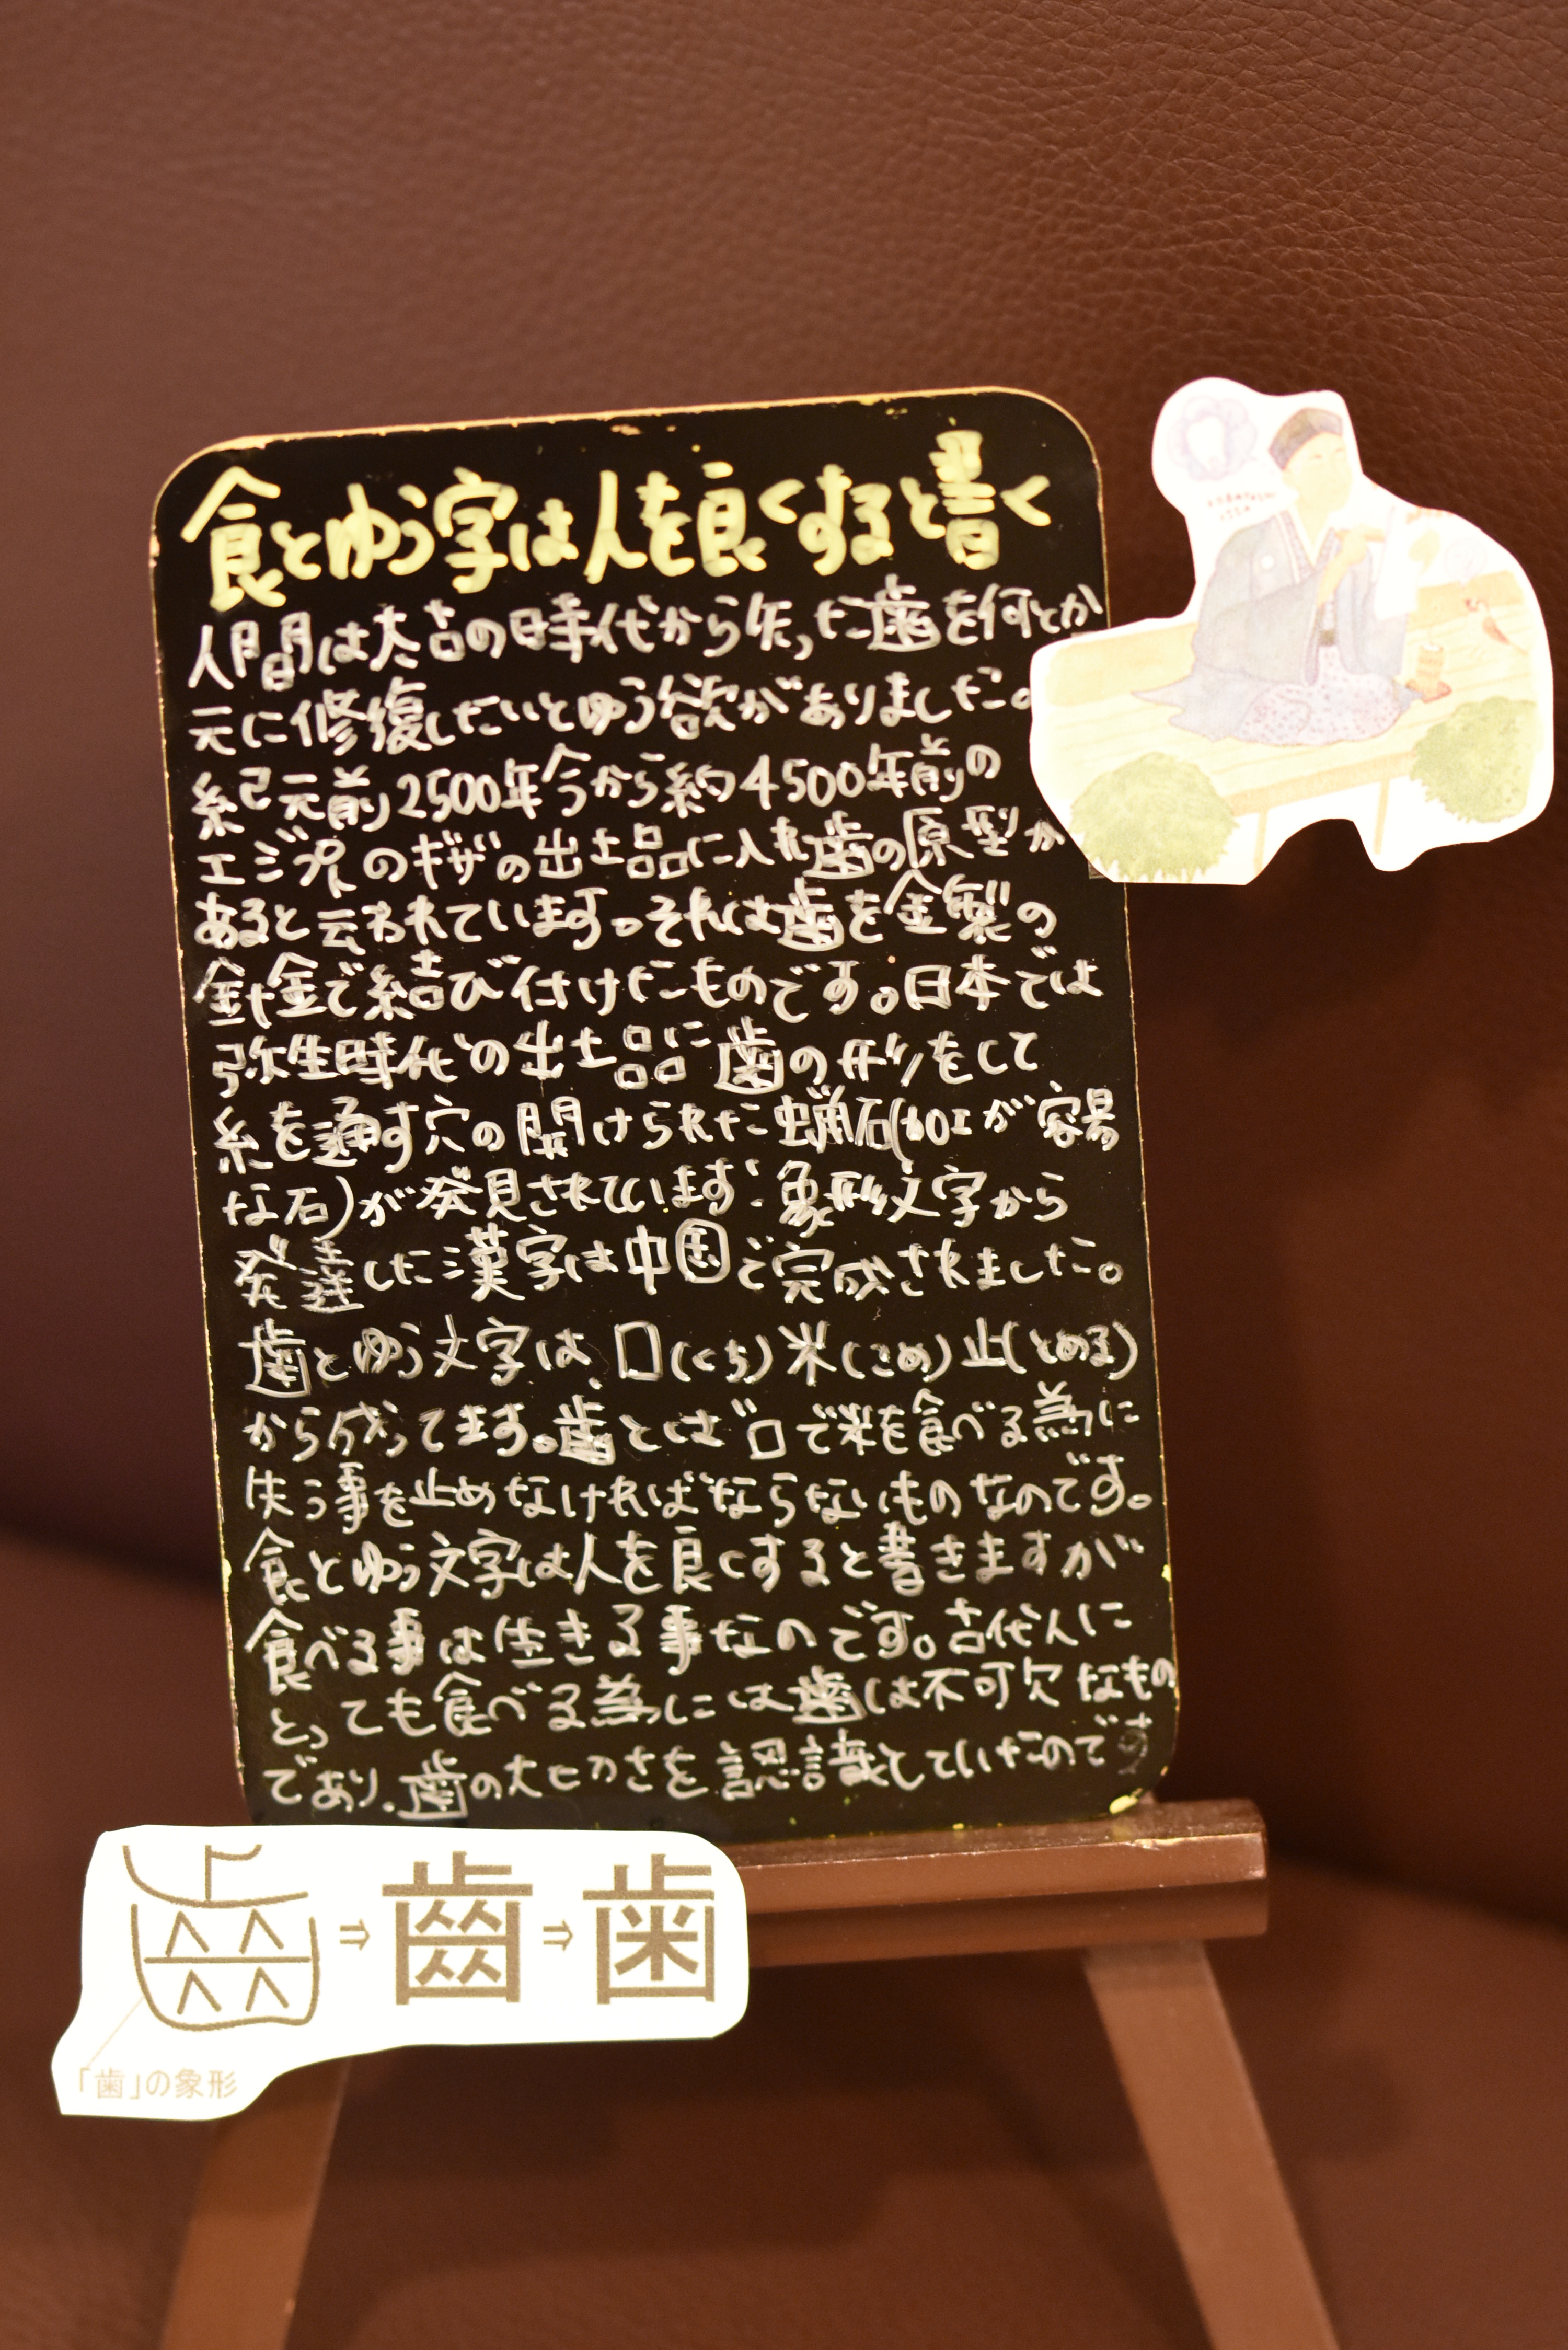 食とゆう字は人を良くすると書く
人間は太古の時代から失った歯を何とか
元に修復したいとゆう欲がありました。
紀元前2500年今から約4500年前の
エジプトのギザの出土品に入れ歯の原型が
あると云われています。それは歯を金製の
針金で結び付けたものです。日本では
弥生時代の出土品に歯の形をして
糸を通す穴の開けられた蝋石(加工が容易
な石)が発見されています。象形文字から
発達した漢字は中国で完成されました。
歯とゆう文字は、口(くち)米(こめ)止(とめる)
から成ってます。歯とは口で米を食べる為に
失う事を止めなければならないものなのです。
食とゆう文字は人を良くすると書きますが
食べる事は生きる事なのです。古代人に
とっても食べる為には歯は不可欠なもの
であり、歯の大切さを認識していたのです
⇒齒⇒歯
「歯」の象形